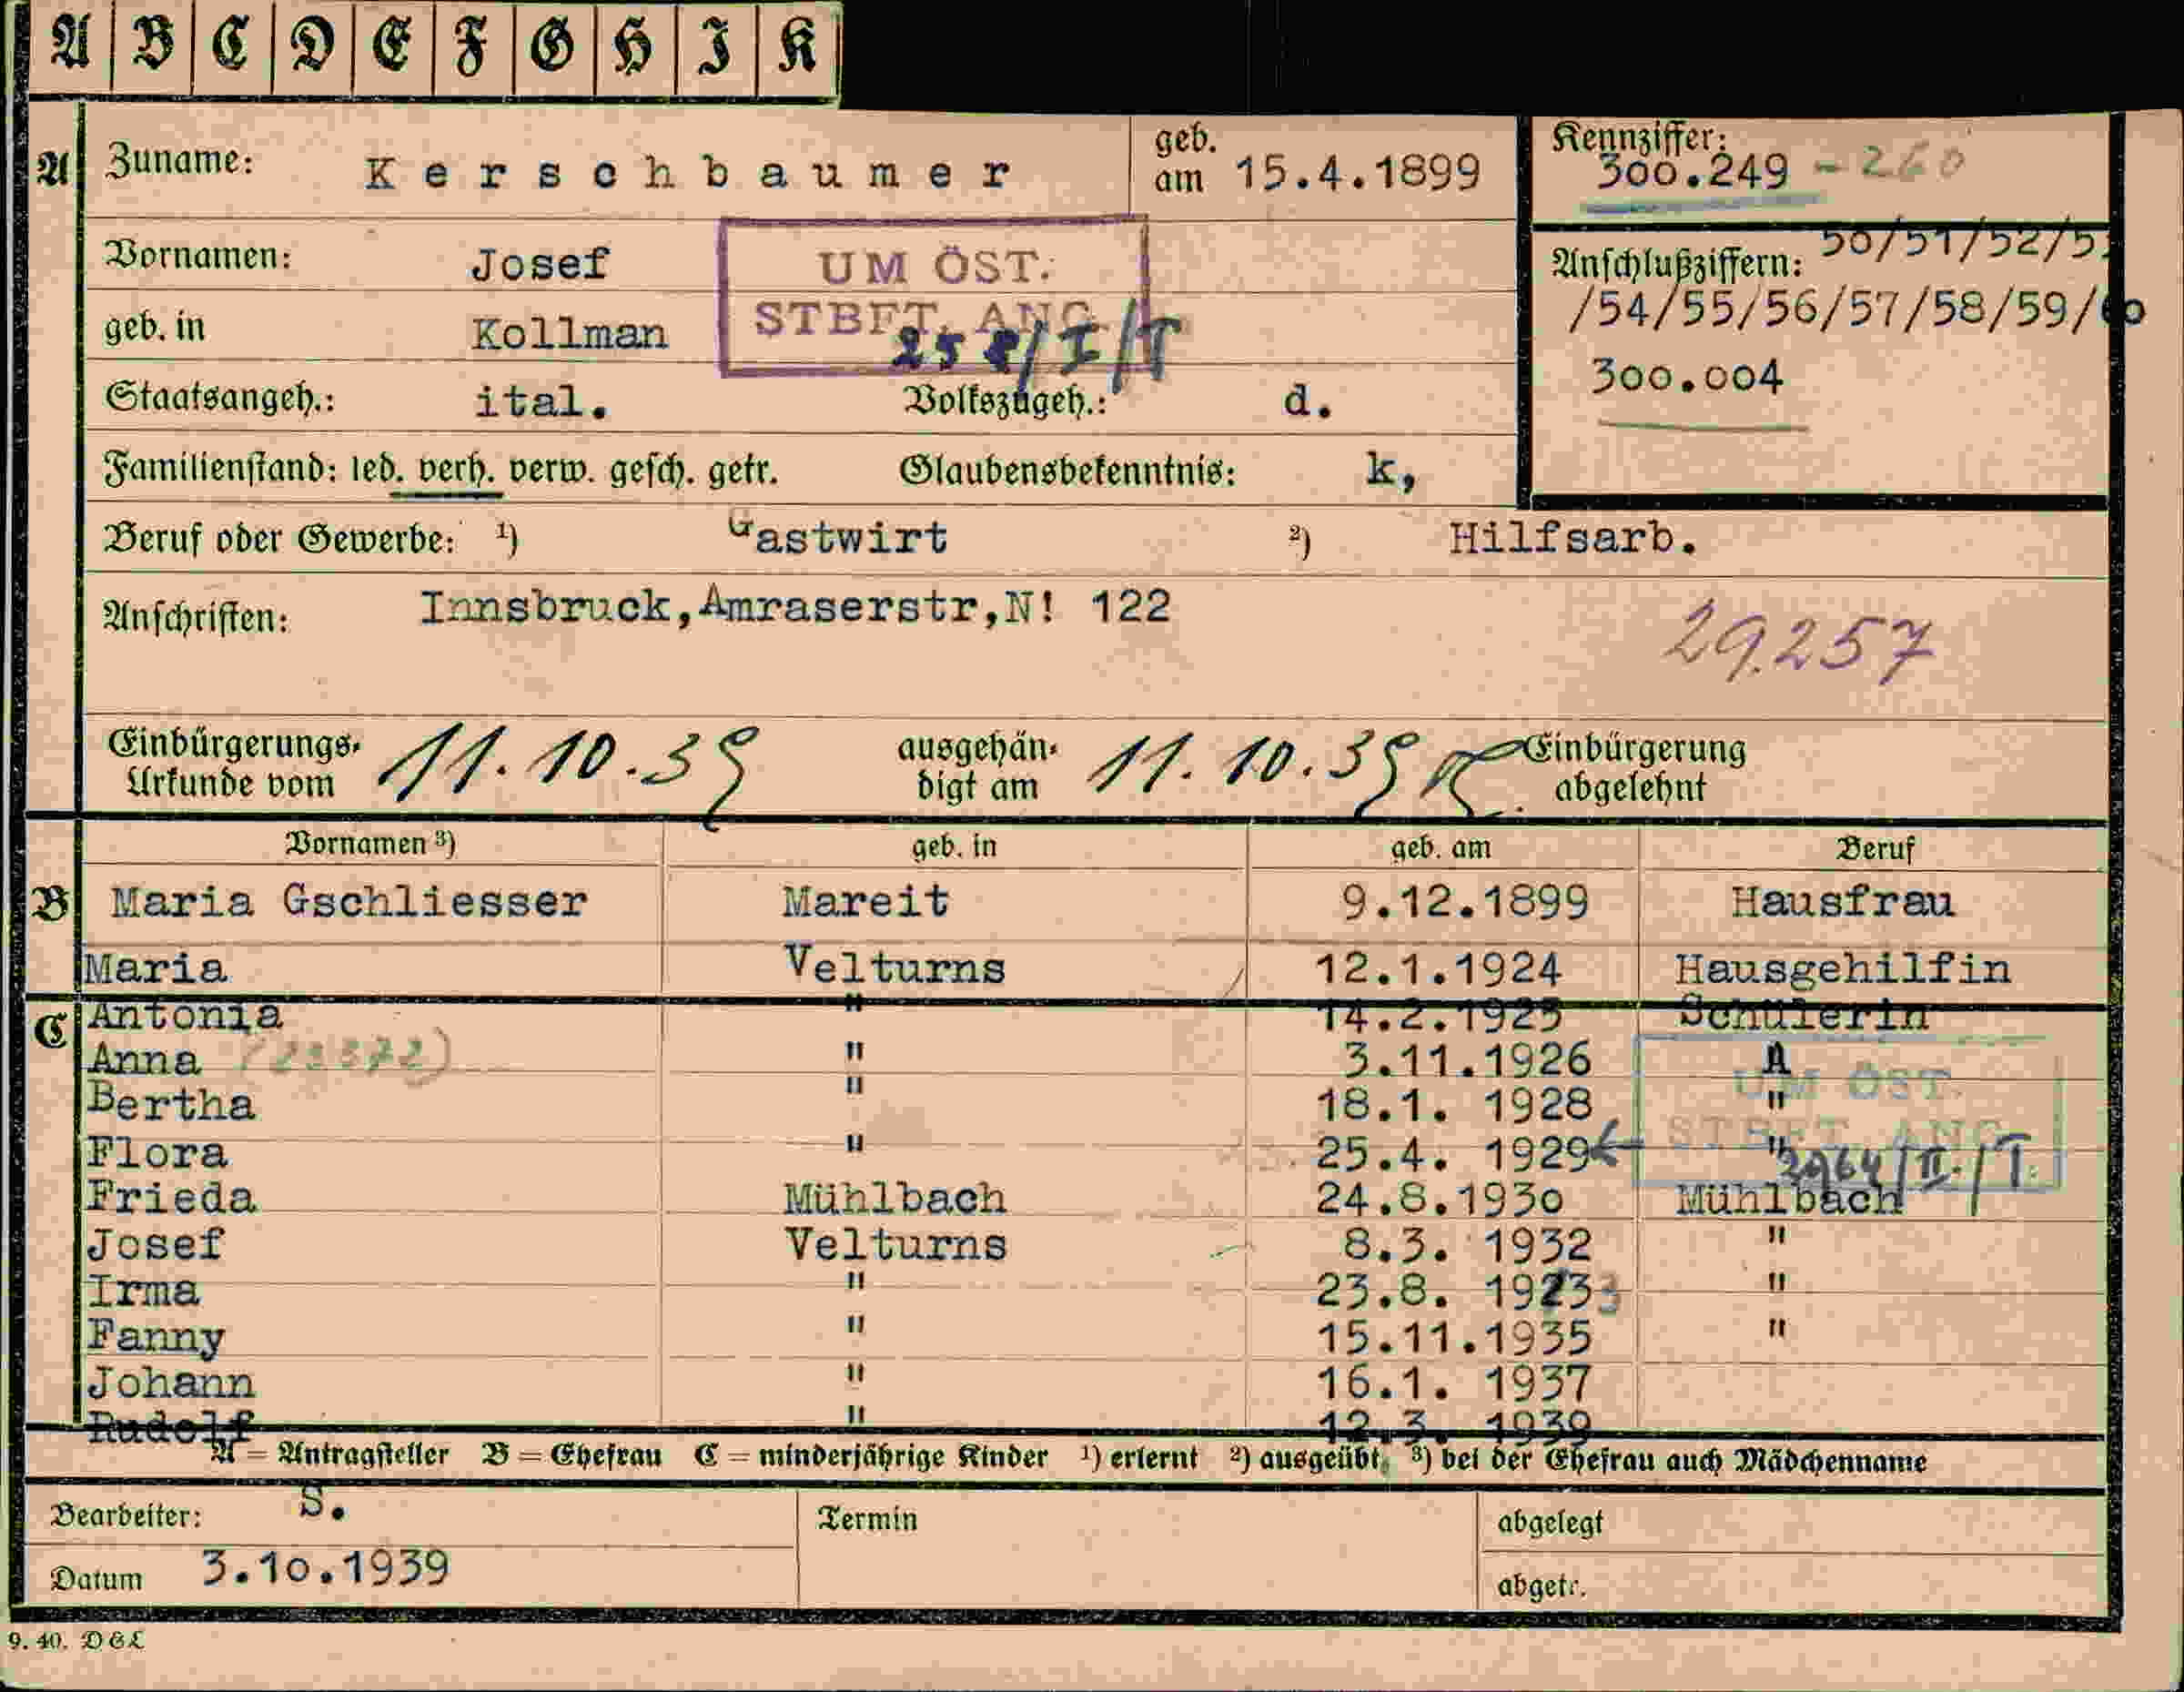 A B C D E F G H I K
A Zuname: Kerschbaumer geb. am 15.4.1899
Kennziffer: 300.249 - 260
Vornamen: Josef
UM ÖST.
STBFT. ANG.
Anschlußziffern: 50/51/52/5
/54/55/56/57/58/59/60
geb. in Kollman
/I/T
300.004
Staatsangeh.: ital. Volkszugeh.: d.
Familienstand: led. verh. verw. gesch. getr. Glaubensbekenntnis: k,
Beruf oder Gewerbe: 1) Gastwirt 2) Hilfsarb.
Anschriften: Innsbruck,Amraserstr,N! 122
29.257
Einbürgerungs-Urkunde vom 11.10.39 ausgehändigt am 11.10.39 Einbürgerung abgelehnt
Vornamen 3) geb. in geb. am Beruf
B Maria Gschliesser Mareit 9.12.1899 Hausfrau
Maria Velturns 12.1.1924 Hausgehilfin
C Antonia " 14.2.1925 Schülerin
Anna (23372) " 3.11.1926 A
UM ÖST.
Bertha " 18.1. 1928 "
STBFT. ANG.
Flora " 25.4. 1929 "
2964/II./T.
Frieda Mühlbach 24.8.1930 Mühlbach
Josef Velturns 8.3. 1932 "
Irma " 23.8. 19233 "
Fanny " 15.11.1935 "
Johann " 16.1. 1937
Rudolf " 12.3. 1939
A = Antragsteller B = Ehefrau C = minderjährige Kinder 1) erlernt 2) ausgeübt, 3) bei der Ehefrau auch Mädchenname
Bearbeiter: S. Termin abgelegt
Datum 3.10.1939 abgetr.
9. 40. DGL